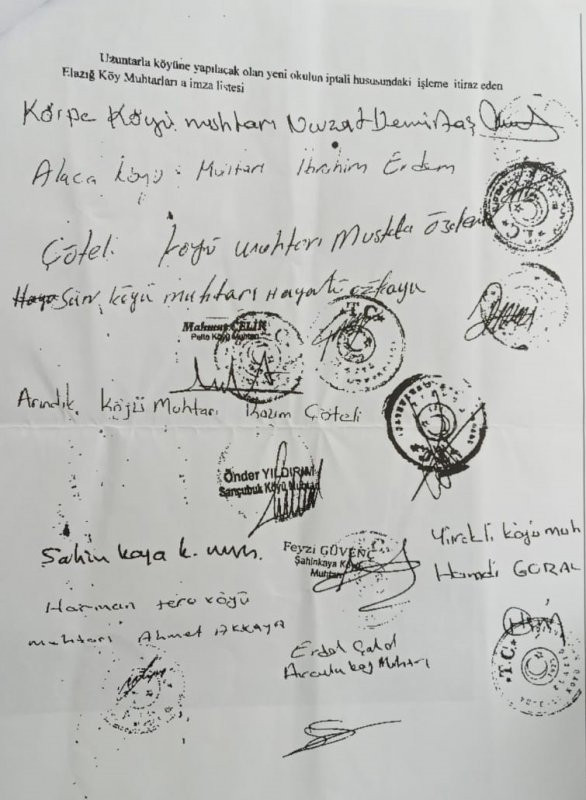 Uzuntarla köyüne yapılacak olan yeni okulun iptali hususundaki işleme itiraz eden
Elazığ Köy Muhtarları a imza listesi
Körpe Köyü muhtarı Nevzat Demirtaş
Alaca köyü Muhtarı İbrahim Erdem
Çöteli köyü muhtarı Mustafa
Sün köyü muhtarı Hayati Özkaya
Mahmut ÇELİK
Pelte Köyü Muhtarı
T.C.
Arındık Köyü Muhtarı Kazım Çöteli
Önder YILDIRIM
Sarıçubuk Köyü Muhtarı
Şahin kaya k. muh.
Feyzi GÜVENÇ
Şahinkaya Köyü
Muhtarı
Yürekli köyü muh
Hamdi GÜRAL
Harman tepe köyü
muhtarı Ahmet AKKAYA
Erdal
köy Muhtarı
T.C.